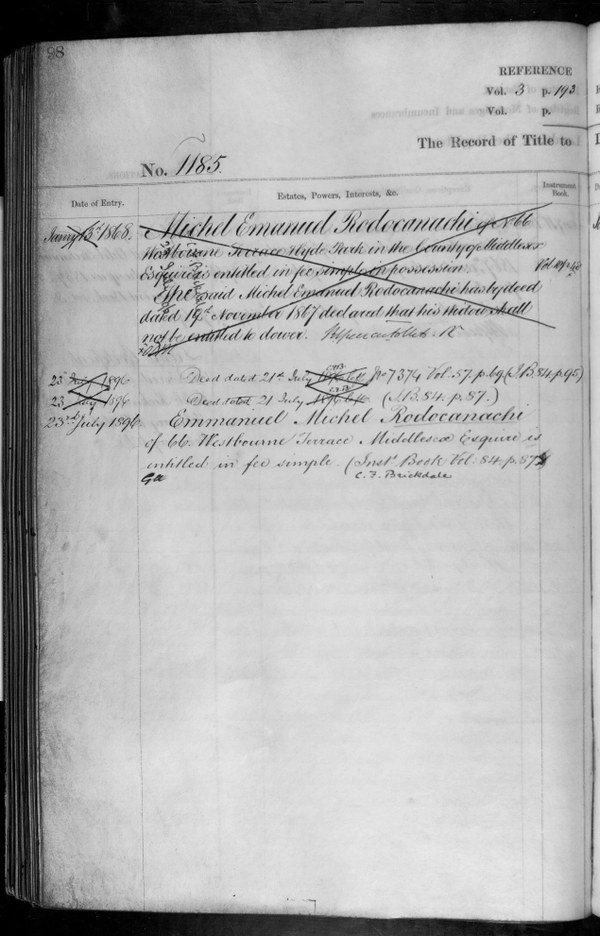 98
REFERENCE
Vol. 3 p. 193
Vol. p.
The Record of Title to
No. 1185.
Date of Entry.
Estates, Powers, Interests, &c.
Instrument Book.
Jany 13th 1868.
Michel Emanuel Rodocanachi of No 66
Westbourne Terrace Hyde Park in the County of Middlesex
Esquire is entitled in fee simple in possession
The said Michel Emanuel Rodocanachi has by deed
dated 19th November 1867 declared that his widow shall
not be entitled to dower.
23 July 1896
Deed dated 21st July 1896 No 7374 Vol. 57. p. 69 (I.B. 84. p. 95.)
23 July 1896
Deed dated 21 July 1896 (I.B. 84. p. 87.)
23rd July 1896
Emmanuel Michel Rodocanachi
of 66. Westbourne Terrace Middlesex Esquire is
entitled in fee simple. (Inst. Book Vol. 84. p. 87
C. F. Brickdale